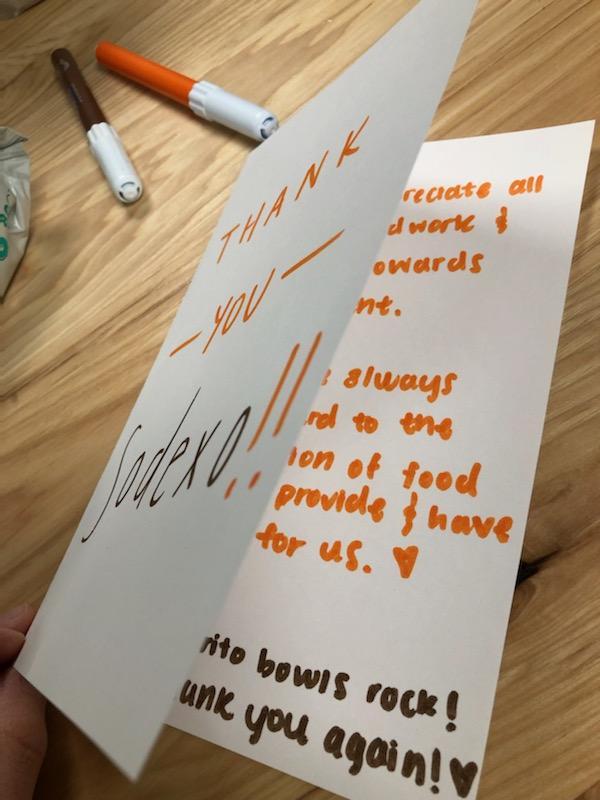 THANK
— YOU —
Sodexo!!
reciate all
dwork &
owards
nt.
always
rd to the
ion of food
provide & have
for us. ♥
rito bowls rock!
ank you again! ♥